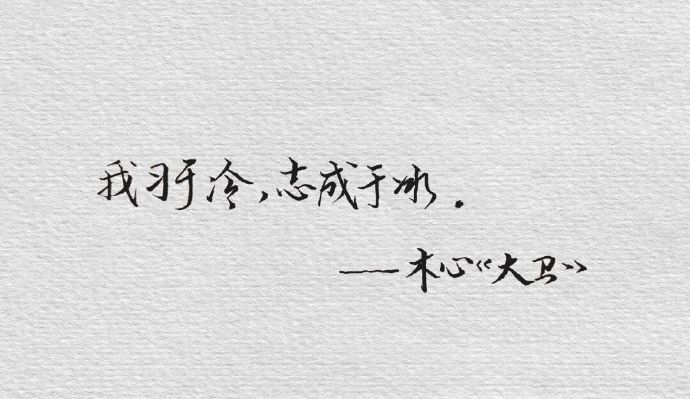 我习于冷，志成于冰.
——木心《大卫》